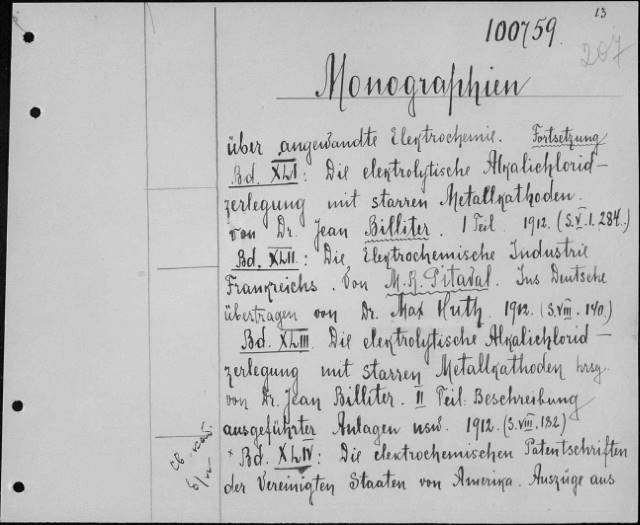 13
100759.
207
Monographien
über angewandte Elektrochemie. Fortsetzung
Bd. XLI: Die elektrolytische Alkalichlorid-
zerlegung mit starren Metallkathoden.
von Dr. Jean Billiter. I Teil 1912. (S.V.1.284.)
Bd. XLII: Die Elektrochemische Industrie
Frankreichs. Von M.R. Pitaval. Ins Deutsche
übertragen von Dr. Max Huth. 1912. (S.VIII.140.)
Bd. XLIII Die elektrolytische Alkalichlorid-
zerlegung mit starren Metallkathoden hrsg.
von Dr. Jean Billiter. II Teil: Beschreibung
ausgeführter Anlagen usw. 1912. (S.VIII.182)
* Bd. XLIV: Die elektrochemischen Patentschriften
der Vereinigten Staaten von Amerika. Auszüge aus